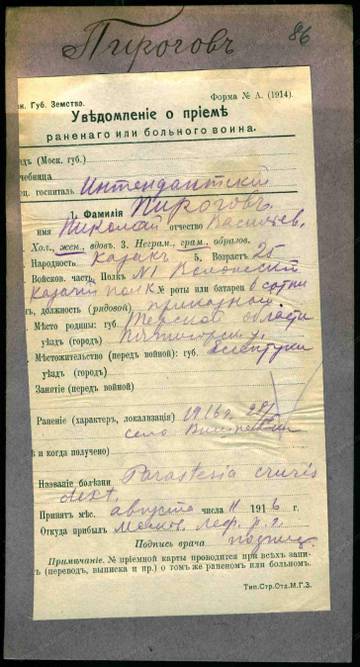 Пироговъ 86
ск. Губ. Земство. Форма № А. (1914).
Увѣдомленіе о пріемѣ
раненаго или больного воина.
ѣздъ (Моск. губ.)
чебница
ец. госпиталь Интендантскій
1. Фамилія Пироговъ
имя Николай отчество Васильев.
Хол., жен., вдов. 3. Неграм., грам., образов.
Народность Казакъ 5. Возрастъ 25
Войсков. часть, Полкъ №1 Волгскій
Казачій полк № роты или батареи 6 сотни
ъ, должность (рядовой) приказной
Мѣсто родины: губ. Терской области
уѣздъ (городъ) Пятигорск.
Мѣстожительство (передъ войной): губ. Ессентуки
уѣздъ (городъ)
Занятіе (передъ войной)
Раненіе (характеръ, локализація) 1916 г.
село
ѣ и когда получено)
Названіе болѣзни Parastesia cruris
dext.
Принятъ мѣс. августа числа 11 191 6 г.
Откуда прибылъ Москов.
Подпись врача подпис.
Примѣчаніе. № пріемной карты проводится при всѣхъ запи-
(переводъ, выписка и пр.) о томъ же раненомъ или больномъ.
Тип.Стр.Отд.М.Г.З.